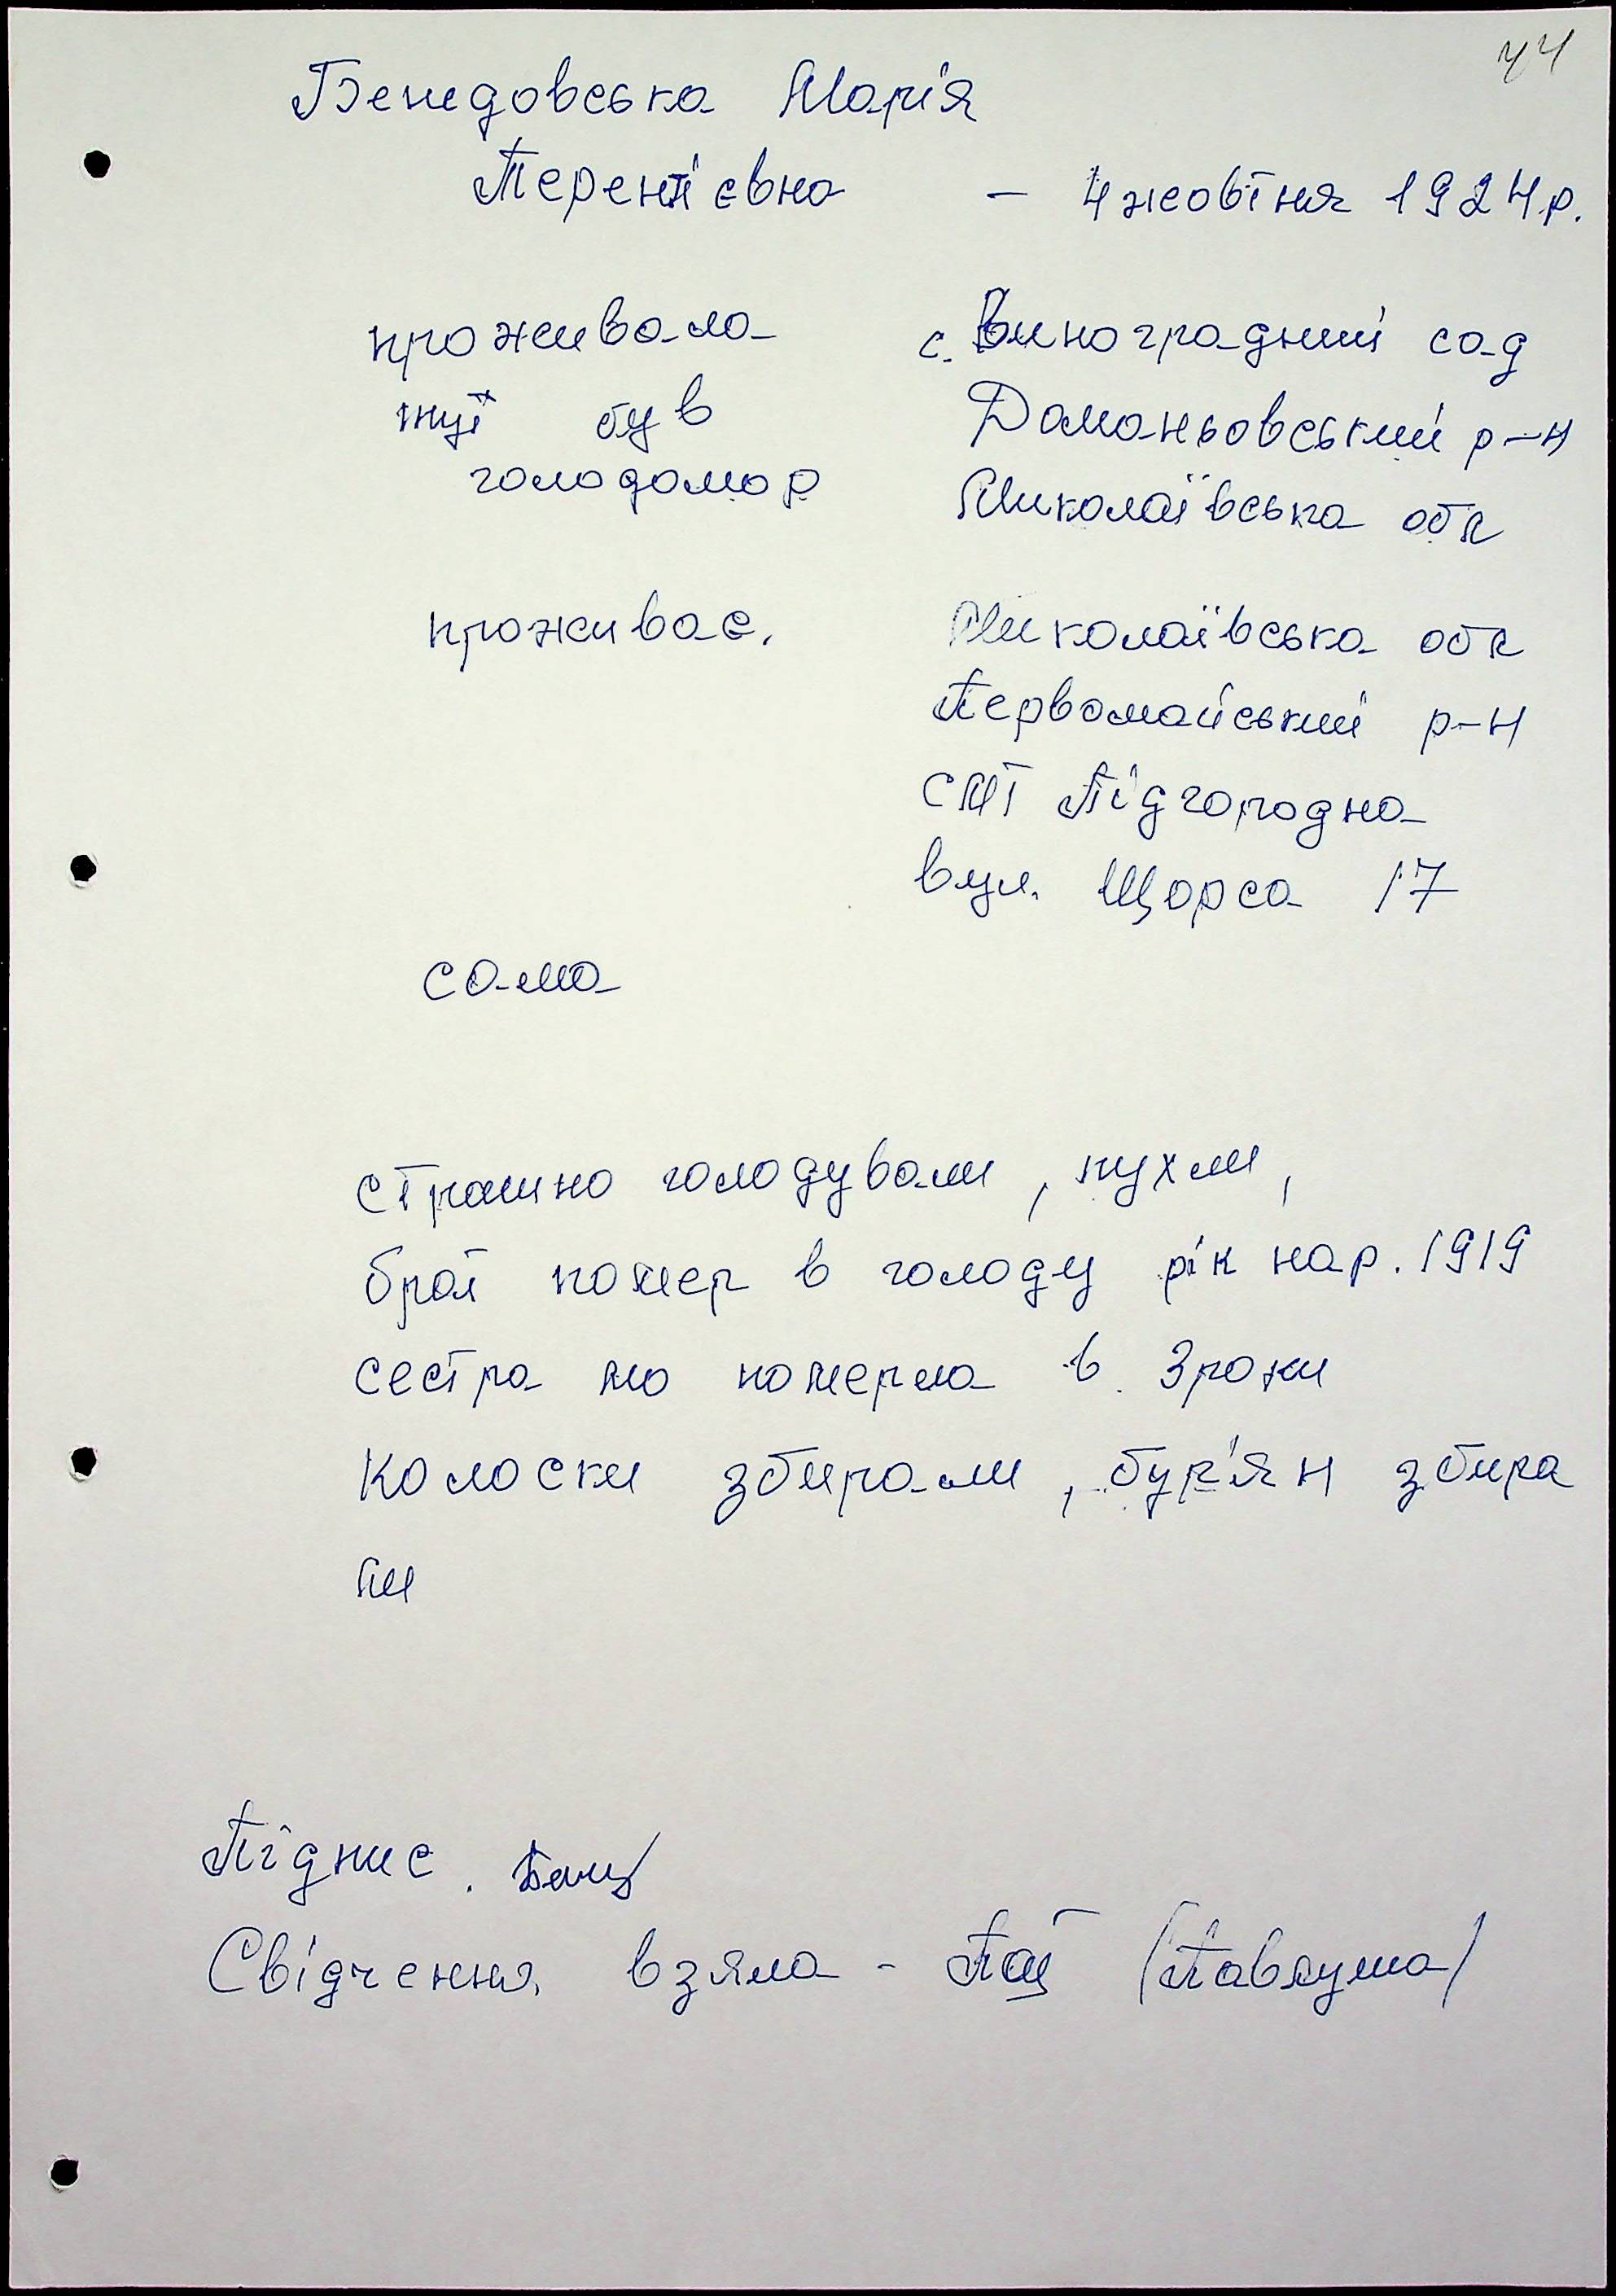 44
Бендовська Марія
Терентієвна – 4 жовтня 1924 р.
проживала с. Виноградний сад
тут був Доманьовський р-н
голодомор Миколаївська обл
проживає. Миколаївська обл
Первомайський р-н
СМТ Підгородна
вул. Щорса 17
сама
страшно голодували, пухли,
брат помер в голоду рік нар. 1919
сестра помер­ла в 3 роки
Колоски збирали, бур'ян збира
ли
Підпис.
Свідчення взяла -